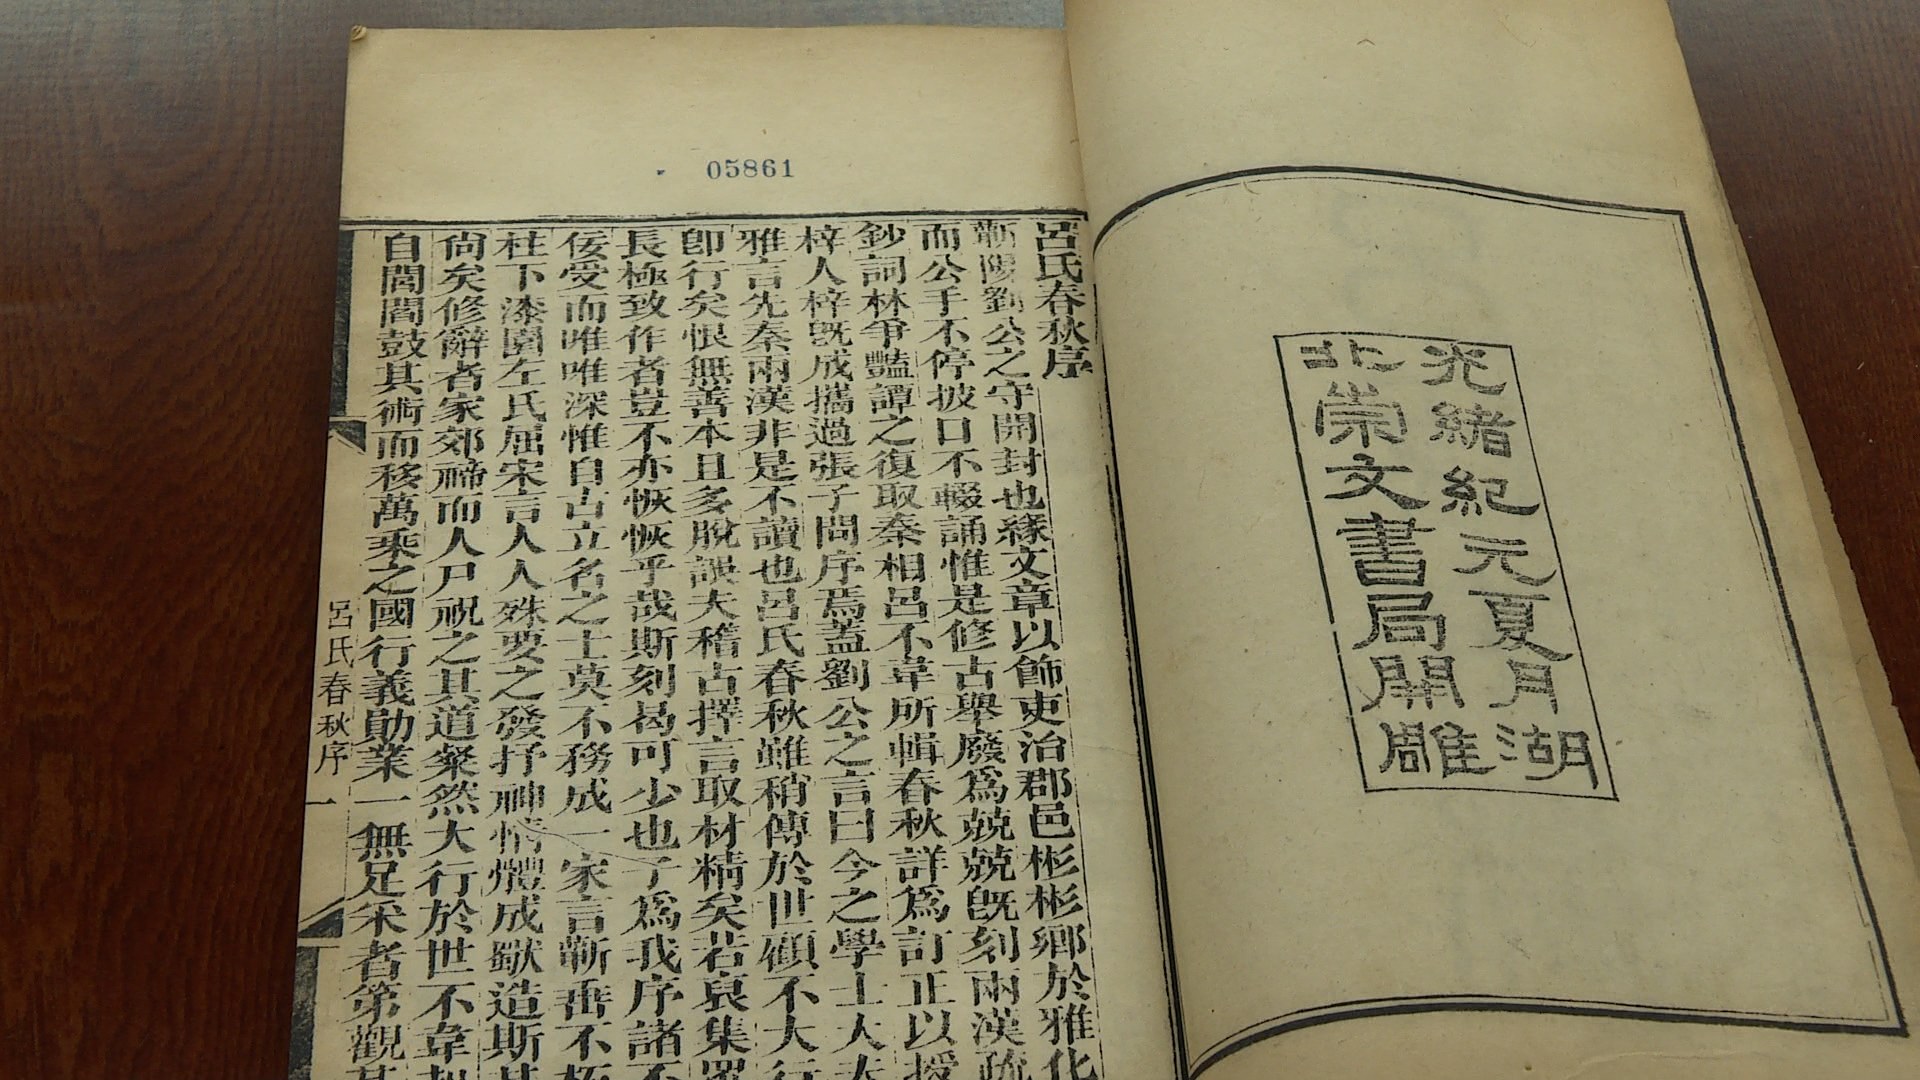 光緒紀元夏月湖
北崇文書局開雕
05861
呂氏春秋序
蘄陽劉公之守開封也緣文章以飾吏治郡邑彬彬鄉於雅化
而公手不停披口不輟誦惟是修古舉廢為兢兢旣刻兩漢疏
鈔詞林爭豔譚之復取秦相呂不韋所輯春秋詳為訂正以授
梓人梓旣成攜過張子問序焉蓋劉公之言曰今之學士大夫
雅言先秦兩漢非是不讀也呂氏春秋雖稍傳於世顧不大行
卽行矣恨無善本且多脫誤夫稽古擇言取材精矣若裒集羣
長極致作者豈不亦恢恢乎哉斯刻曷可少也子為我序諸不
佞受而唯唯深惟自古立名之士莫不務成一家言蘄垂不朽
柱下漆園左氏屈宋言人人殊要之發抒神情體成獸造斯其
尙矣修辭者家郊禘而人尸祝之其道粲然大行於世不韋
自閭閻鼓其術而移萬乘之國行義勛業一無足采者第觀其
呂氏春秋序
一